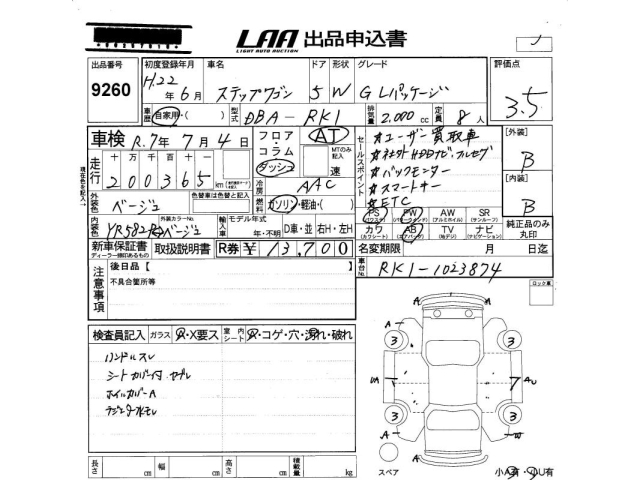 LAA 出品申込書
LIGHT AUTO AUCTION
出品番号 初度登録年月 車名 ドア 形状 グレード 評価点
9260 H.22年6月 ステップワゴン 5 W G Lパッケージ 3.5
車歴 自家用・( ) 型式 DBA-RK1 排気量 2,000 cc 定員 8人
車検 R.7年7月4日 フロア・コラム・ダッシュ AT MTのみ記入 速
セールスポイント
★ユーザー買取車
★社外HDDナビ.フルセグ
★バックモニター
★スマートキー
★ETC
[外装] B
[内装] B
走行 十万 万 千 百 十 一
200365 km
冷房 AAC
外装色 ベージュ 色替車は色替と記入
燃料 ガソリン・軽油・( )
内装色 ベージュ 外装カラーNo. YR582 輸入車 モデル年式 年・不明 D車・並 右H・左H
PS (パワステ) PW (パワーウインド) AW (アルミホイル) SR (サンルーフ)
カワ (カワシート) AB (エアバック) TV (地デジ) ナビ (ナビゲーション)
純正品のみ丸印
新車保証書 取扱説明書 R券 ¥13,700 名変期限 月 日迄
ディーラー様印あるもの
車台No. RK1-1023874
注意事項 後日品【 】
不具合箇所等
ロック車
検査員記入 ガラス A・X要ス 室内シート A・コゲ・穴・汚れ・破れ
ハンドルスレ
シートカバー付.ヤブレ
ホイルカバーA
ラジエター水モレ
A 3 3 A
UA 7 AU
3 3
A W
スペア 小A有・小U有
長さ cm 幅 cm 高さ cm 積載量 kg